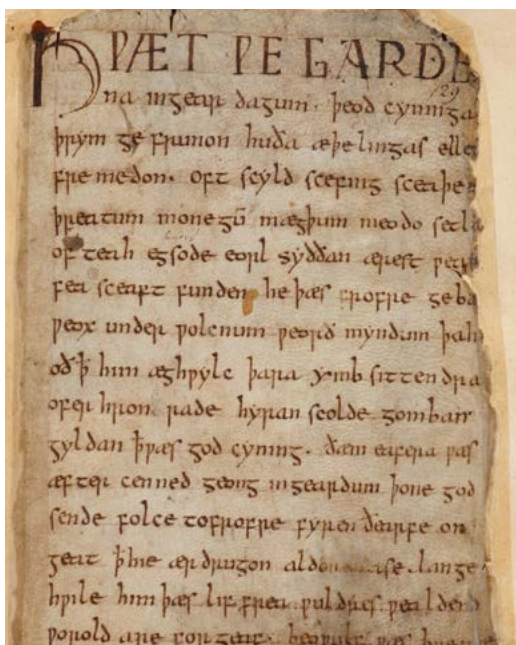 HǷÆT ǷE GARDE
na ingear dagum . þeod cyninga
þrym ge frunon huða æþelingas elle
fremedon . oft scyld scefing sceaþe
þreatum monegū mægþum meodo setla
of teah egsode eorl syððan ærest ƿear
fea sceaft funden he þæs frofre geba
ƿeox under ƿolcnum ƿeorð myndum þah
oðꝥ him æghƿylc þara ymb sittendra
ofer hron rade hyran scolde gomban
gyldan ꝥƿæs god cyning . ðæm eafera ƿæs
æfter cenned geong ingeardum þone god
sende folce tofrofre fyren ðearfe on
geat ꝥhie ær drugon aldor ase . lange
hƿile him þæs lif frea ƿuldres ƿealdend
ƿorold are for geaf . beoƿulf ƿæs breme